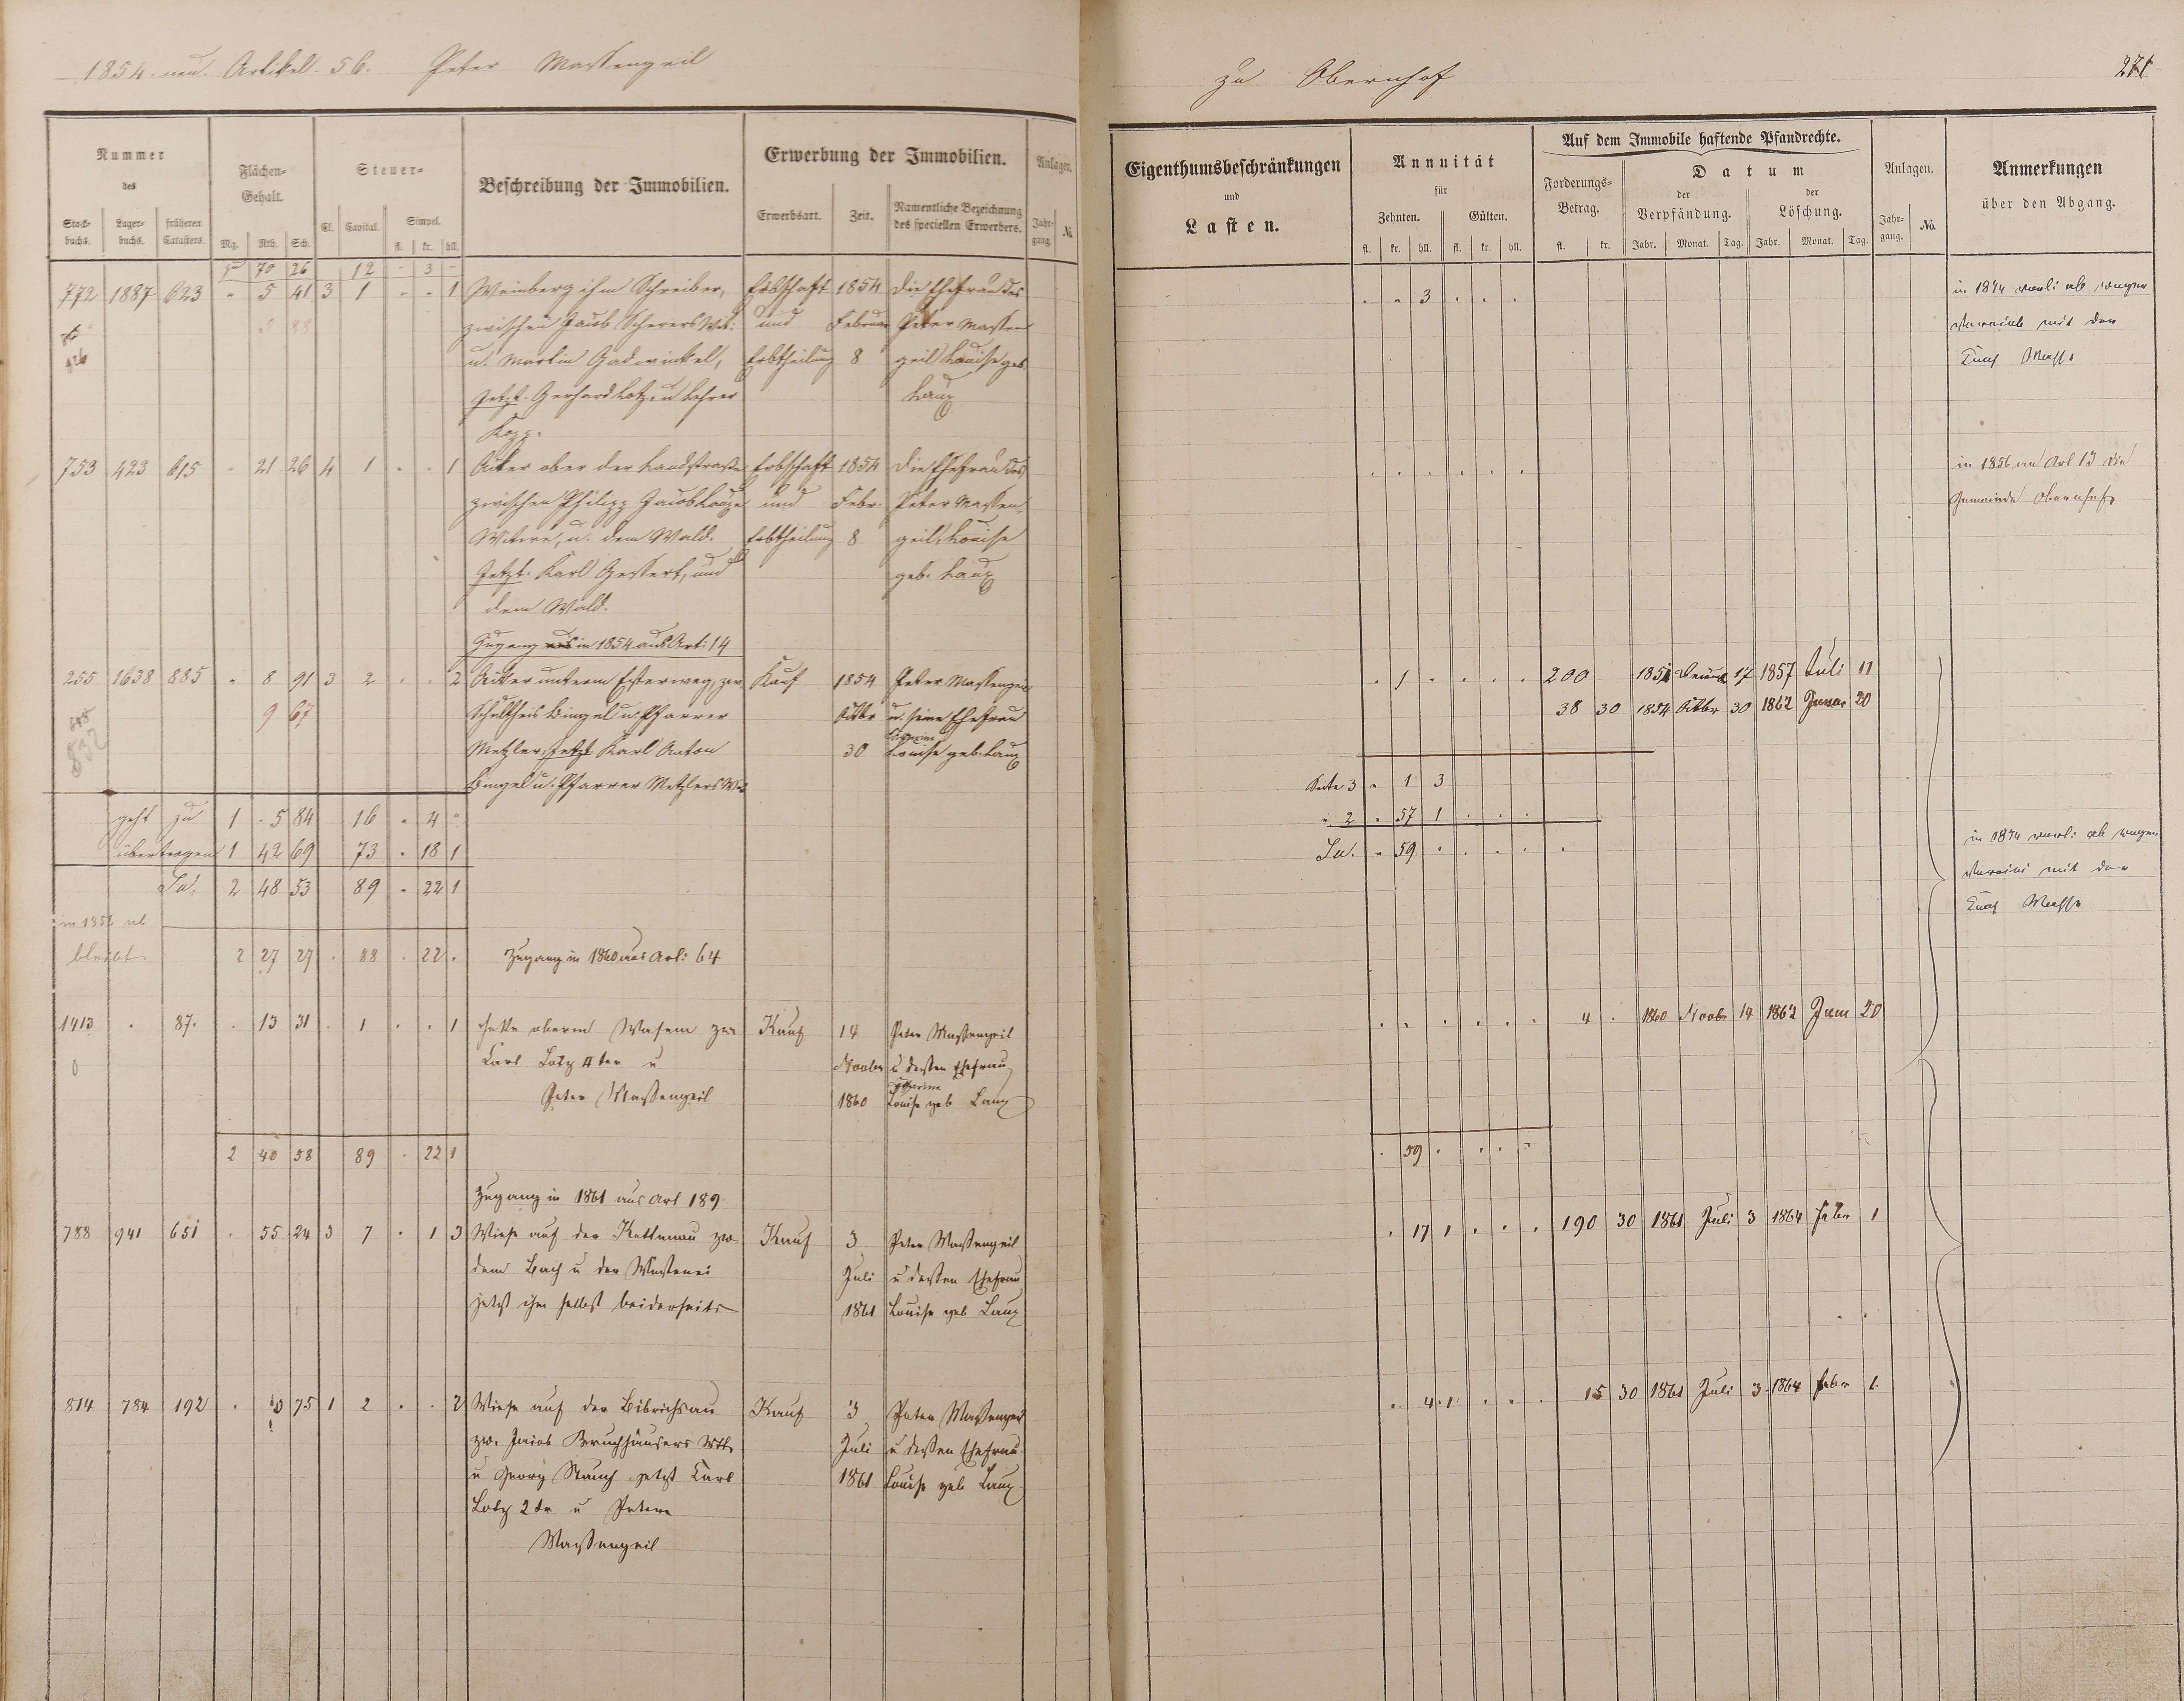 1854. neu. Artikel. 56. Peter Massengeil
zu Obernhof
271
Nummer des
Stockbuchs. Lagerbuchs. früheren Catasters.
Flächen-Gehalt.
Mg. Rth. Sch.
Steuer-
Cl. Capital. Simpel.
fl. kr. hll.
Beschreibung der Immobilien.
Erwerbung der Immobilien.
Erwerbsart. Zeit. Namentliche Bezeichnung des speciellen Erwerbers.
Anlagen.
Jahrgang. No.
Eigenthumsbeschränkungen und Lasten.
Annuität für
Zehnten. Gülten.
fl. kr. hll. fl. kr. hll.
Auf dem Immobile haftende Pfandrechte.
Forderungs-Betrag.
fl. kr.
Datum
der Verpfändung. der Löschung.
Jahr. Monat. Tag. Jahr. Monat. Tag.
Anlagen.
Jahrgang. No.
Anmerkungen über den Abgang.
70 26 12 - 3 -
772 1887 623 - 5 41 3 1 - - 1 Weinberg ihm Schreiber, Erbschaft 1854 die Ehefrau des . . 3 . . .
5 88 zwischen Jacob Scherers Wit: und Februar Peter Massen mit der
u. Martin Gadewinkel, Erbtheilung 8 geil Louise geb. Masse
Jetzt. Gerhard Lotz u Lehrer Laux
Kopp.
753 423 615 - 21 26 4 1 - - 1 Acker ober der Landstraße Erbschaft 1854 die Ehefrau des . . . . . . in 1856 an Art 13 die
zwischen Philipp Jacob Lauxe und Febr. Peter Massen- Gemeinde Obernhof
Witwe, u. dem Wald. Erbtheilung 8 geil, Louise
Jetzt. Karl Gessert, und geb. Laux
dem Wald.
Zugang aus in 1854 aus Art: 14
255 1638 885 - 8 91 3 2 . . 2 Acker unterm Esterweg, zw. Kauf 1854 Peter Massengeil . 1 . . . . 200 1851 17 1857 Juli 11
9 67 Schultheis Bingel u. Pfarrer Octbr u. seine Ehefrau 38 30 1854 Octbr 30 1862 Januar 20
832 Metzler, Jetzt Karl Anton 30 Louise geb. Laux
Bingel u. Pfarrer Metzlers Wit
Seite 3 . 1 3
geht zu 1 . 5 84 16 . 4 . " 2 . 57 1 . . .
übertragen 1 42 69 73 . 18 1 Sa. . 59 . . . . .
Sa. 2 48 53 89 - 22 1 mit der
in 1856 ab Masse
bleibt 2 27 27 . 88 . 22 . Zugang in 1860 aus Art: 64
1413 . 87. . 13 31 . 1 . . 1 oberm Wasem zw Kauf 14 Peter Massengeil . . . . . . 4 . 1860 Novbr 14 1862 20
0 Carl Lotz IIter u Novbr u dessen Ehefrau
Peter Massengeil 1860 Louise geb Laux
2 40 58 89 . 22 1 . 59 . . . .
Zugang in 1861 aus Art 189.
788 941 651 . 55 24 3 7 . 1 3 Wiese auf der Kettenau zw Kauf 3 Peter Massengeil . 17 1 . . . 190 30 1861 Juli 3 1864 Febr 1
dem Bach u der Wüstenei Juli u dessen Ehefrau
jetzt ihm selbst beiderseits 1861 Louise geb Laux
814 784 192 . 75 1 2 . . 2 Wiese auf der Bibrichsau Kauf 3 Peter Massengeil . 4 1 . . . 15 30 1861 Juli 3 1864 Febr 1
zw. Jacob Bruchhäusers Wtb. Juli u dessen Ehefrau
u Georg Stauch jetzt Carl 1861 Louise geb Laux
Lotz 2tr u Peter
Massengeil